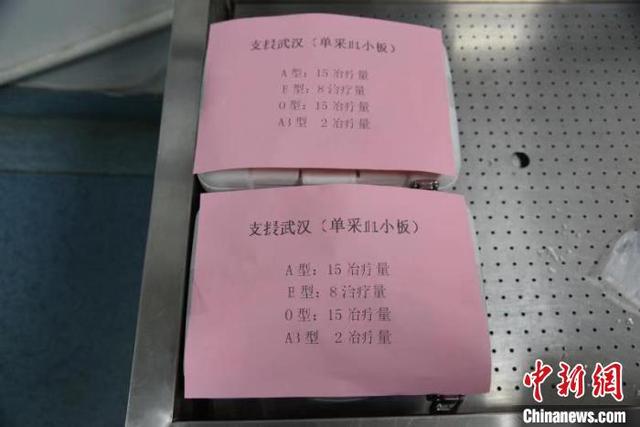 支援武汉（单采血小板）
A 型：15 治疗量
B 型：8 治疗量
O 型：15 治疗量
AB 型 2 治疗量
支援武汉（单采血小板）
A 型：15 治疗量
B 型：8 治疗量
O 型：15 治疗量
AB 型 2 治疗量
中新网
Chinanews.com